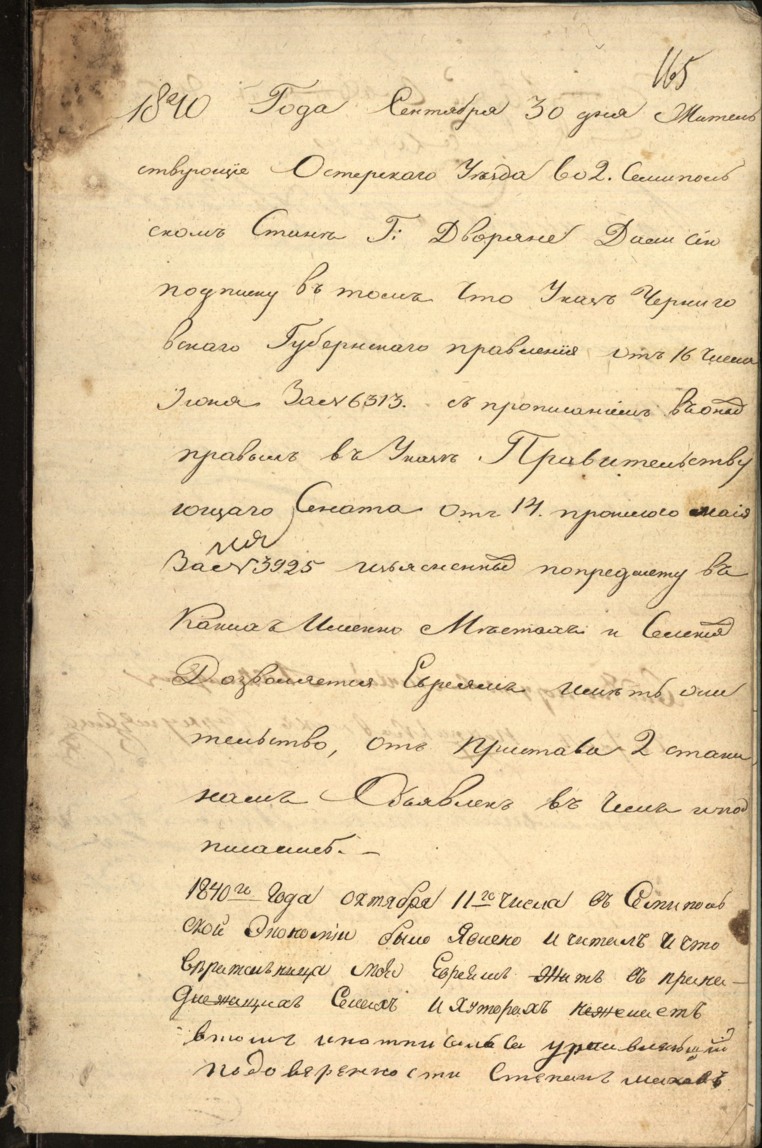 165
18 10 Года Сентября 30 дня Житель
ствующіе Остерского Уѣзда во 2. Семиполь
скомъ Станѣ Г: Дворяне Дали сію
подписку въ томъ что Указъ Черниго
вскаго Губернского правленія отъ 16 Числа
Іюня За №6313. съ прописаніемъ
въ Указѣ Правительству
ющаго Сената отъ 14. прошлого маія
За №3925 попредмету въ
Какихъ Именно Мѣстахъ и Селенія
Дозволяется Евреямъ имѣть жи
тельство, отъ Пристава 2 стана
намъ Объявленъ въ Чемъ и под
писались. —
1840го Года октября 11го Числа въ Семиполь
ской Экономіи было Явлено и читалъ и что
Евреямъ жить въ прина-
Селахъ и хуторахъ
втомъ
подоверенности Степанъ